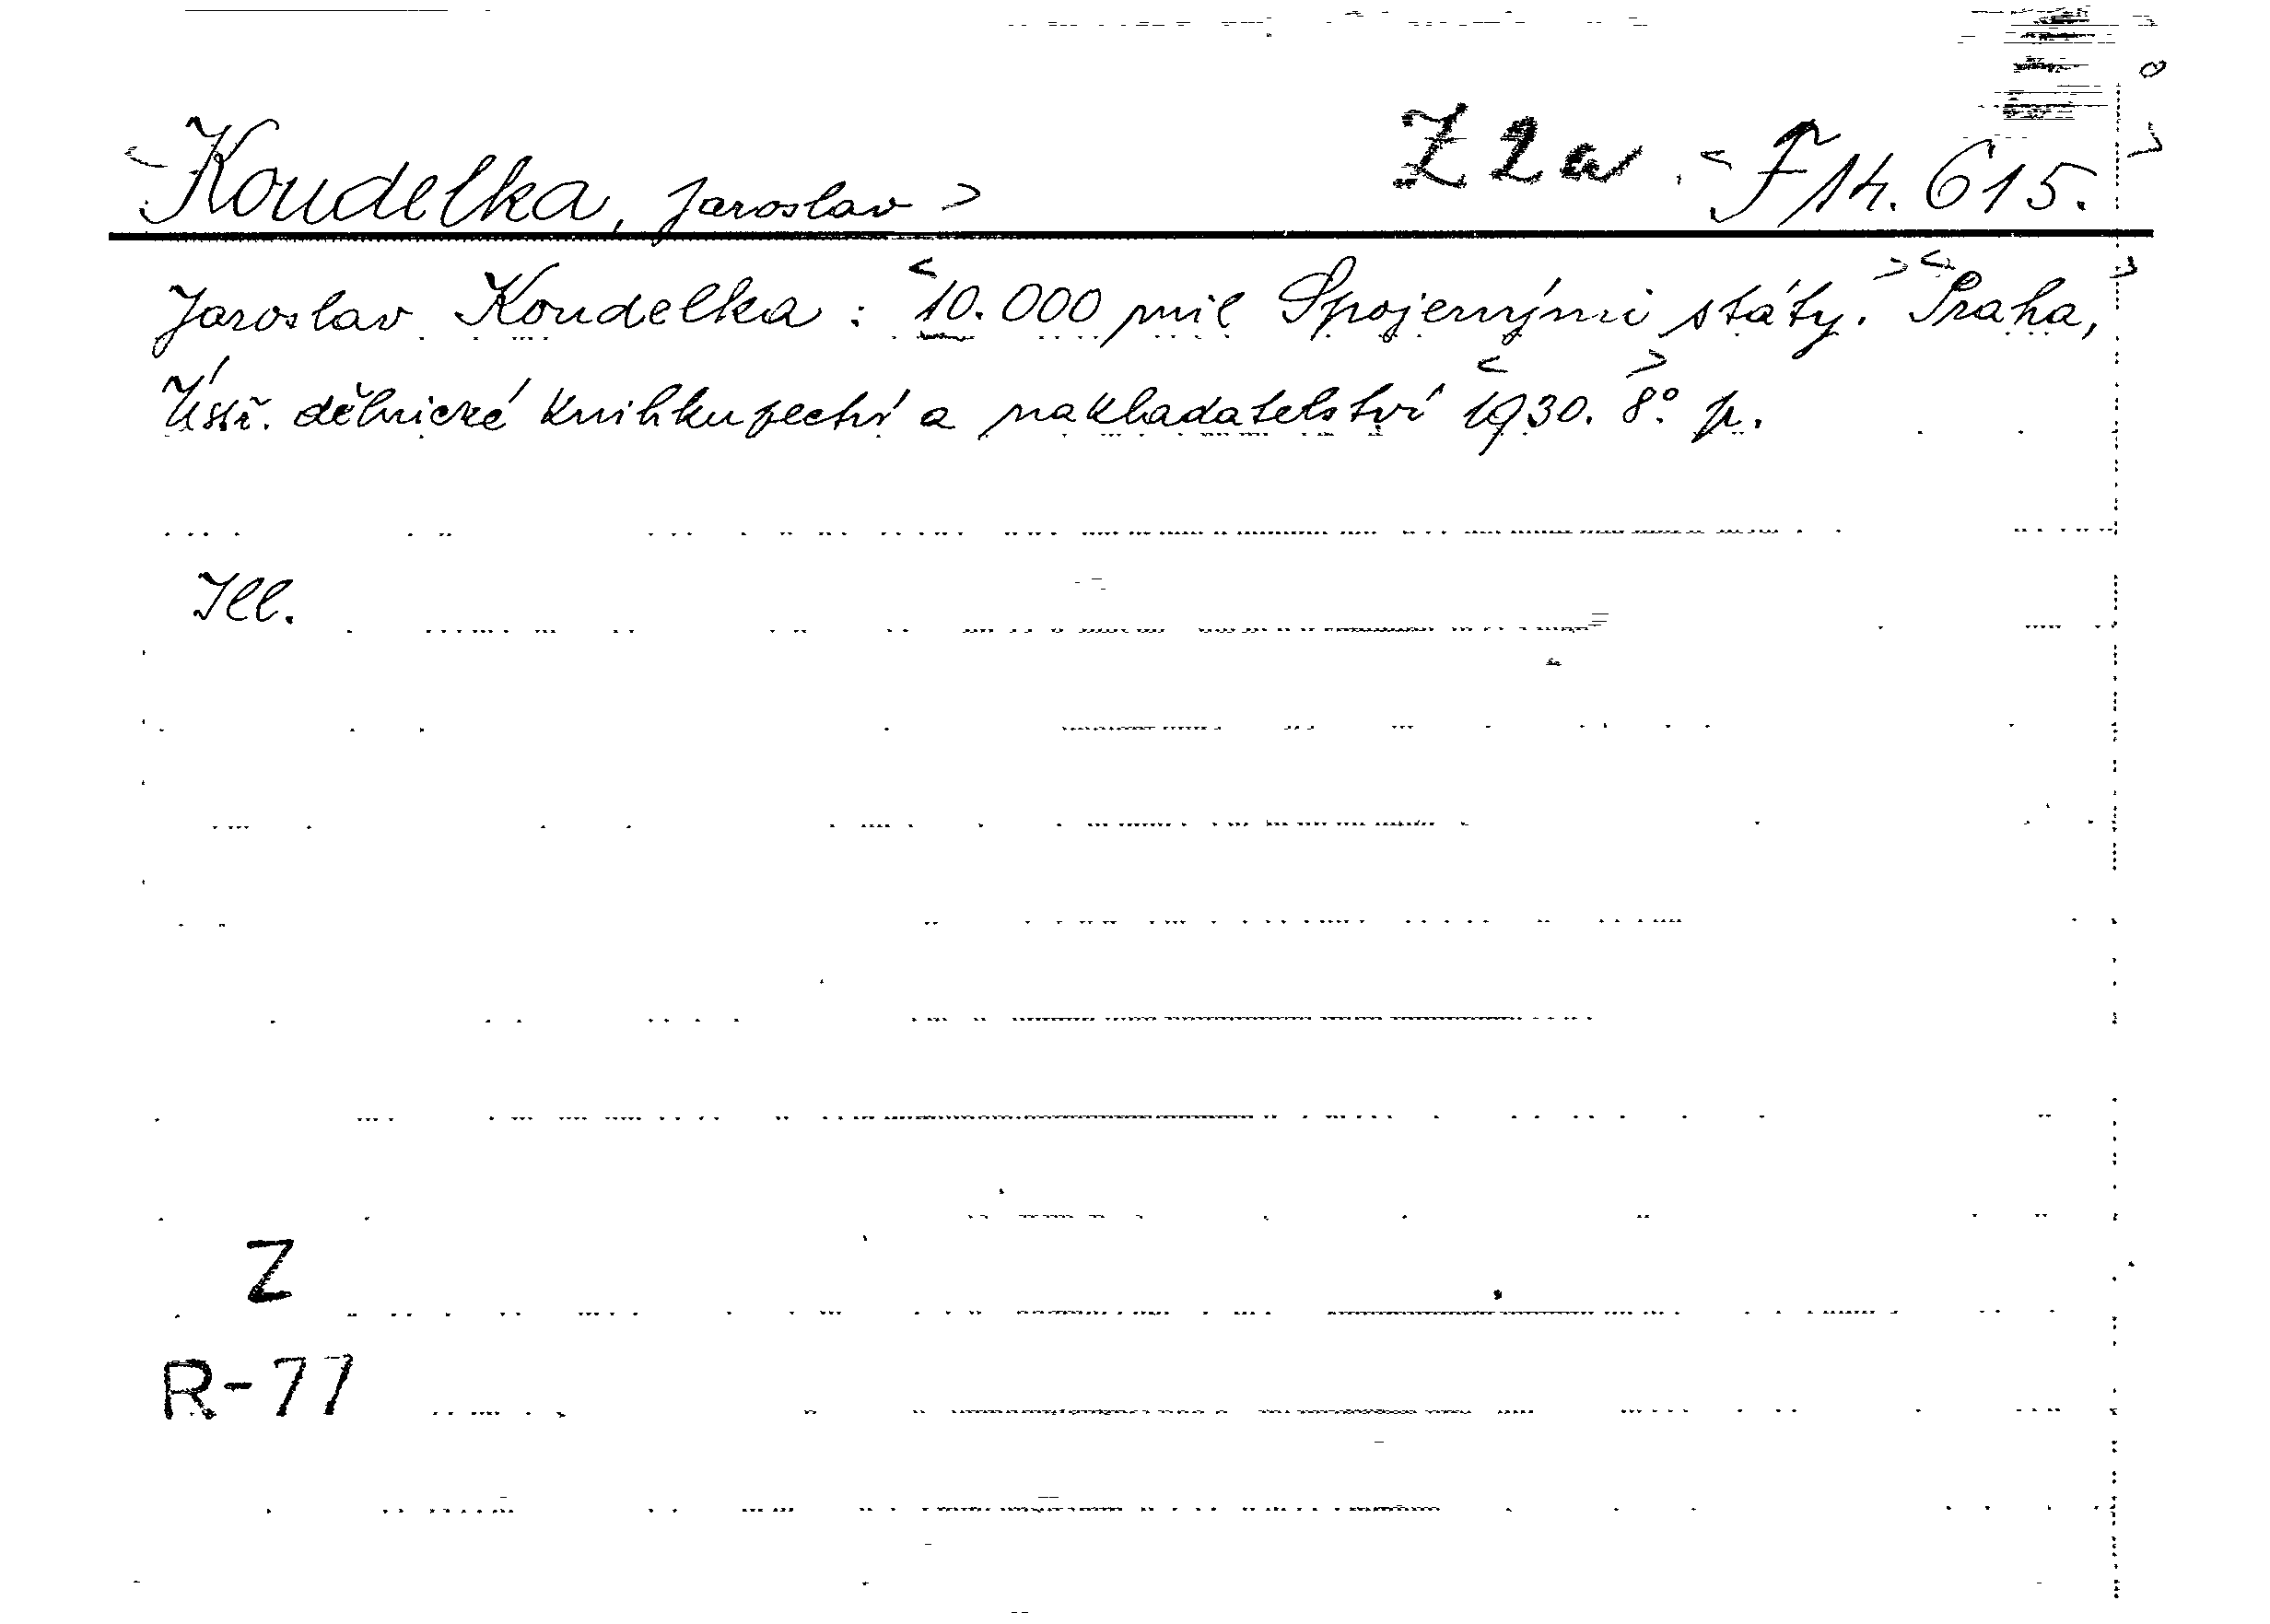 <Koudelka, Jaroslav> Z 2a <F 14.615.>
Jaroslav Koudelka: <10.000 mil Spojenými státy.> <Praha,>
Ústř. dělnické knihkupectví a nakladatelství <1930.> 8° p.
Ill.
Z
R-77